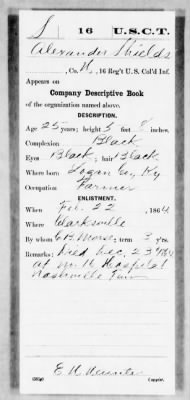 S | 16 | U.S.C.T.
Alexander Shields
, Co. H, 16 Reg't U. S. Col'd Inf.
Appears on
Company Descriptive Book
of the organization named above.
DESCRIPTION.
Age 25 years; height 5 feet 8 inches.
Complexion Black
Eyes Black; hair Black
Where born Logan Co, Ky
Occupation Farmer
ENLISTMENT.
When Feb. 22, 1864
Where Clarksville
By whom C B Morse; term 3 yrs.
Remarks: Died Dec. 23d 1864
at Hospital
Nashville Tenn
E. H.
Copyist.